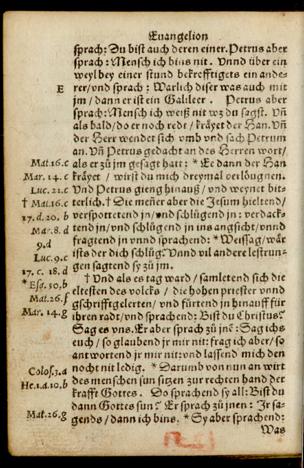 Euangelion
sprach: Du bist auch deren einer. Petrus aber
sprach: Mensch ich bins nit. Vnnd über ein
weyl bey einer stund bekrefftigets ein ande-
E rer/ vnd sprach: Warlich diser was auch mit
jm/ dann er ist ein Galileer. Petrus aber
sprach: Mensch ich weiß nit wz du sagst. Vñ
als bald/ do er noch redt/ kräyet der Han. Vñ
der Herr wendet sich vmb vnd sach Petrum
an. Vñ Petrus gedacht an des Herren wort/
Mat. 26. c als er zů jm gesagt hatt: * Ee dann der Han
Mar. 14. c kräyet/ wirst du mich dreymal verlöugnen.
Luc. 22. c Vnd Petrus gieng hinauß/ vnd weynet bit-
† Mat. 26. c terlich. † Die meñer aber die Jesum hieltend/
17. d. 20. b verspottetend jn/ vnd schlůgend jn: verdack-
Mar. 8. d tend jn/ vnd schlůgend jn ins angsicht/ vnnd
9. d fragtend jn vnnd sprachend: * Weyssag/ wär
Luc. 9. c ists der dich schlůg? Vnnd vil andere lestrun-
17. c. 18. d gen sagtend sy zů jm.
* Esa. 50. b † Vnd als es tag ward/ samletend sich die
Mat. 26. f eltesten des volcks/ die hohen priester vnnd
Mar. 14. g gschrifftgelerten/ vnd fürtend jn hinauff für
jhren radt/ vnd sprachend: Bist du Christus?
Sag es vns. Er aber sprach zů jnē: Sag ichs
euch/ so glaubend jr mir nit: frag ich aber/ so
antwortend jr mir nit: vnd lassend mich den
Colos. 3. a nocht nit ledig. * Darumb von nun an wirt
He. 1. d. 10. b des menschen sun sitzen zur rechten hand der
krafft Gottes. Do sprachend sy all: Bist du
dann Gottes sun? Er sprach zů jnen: Jr sa-
Mat. 26. g gends/ dann ich bins. * Sy aber sprachend:
Was